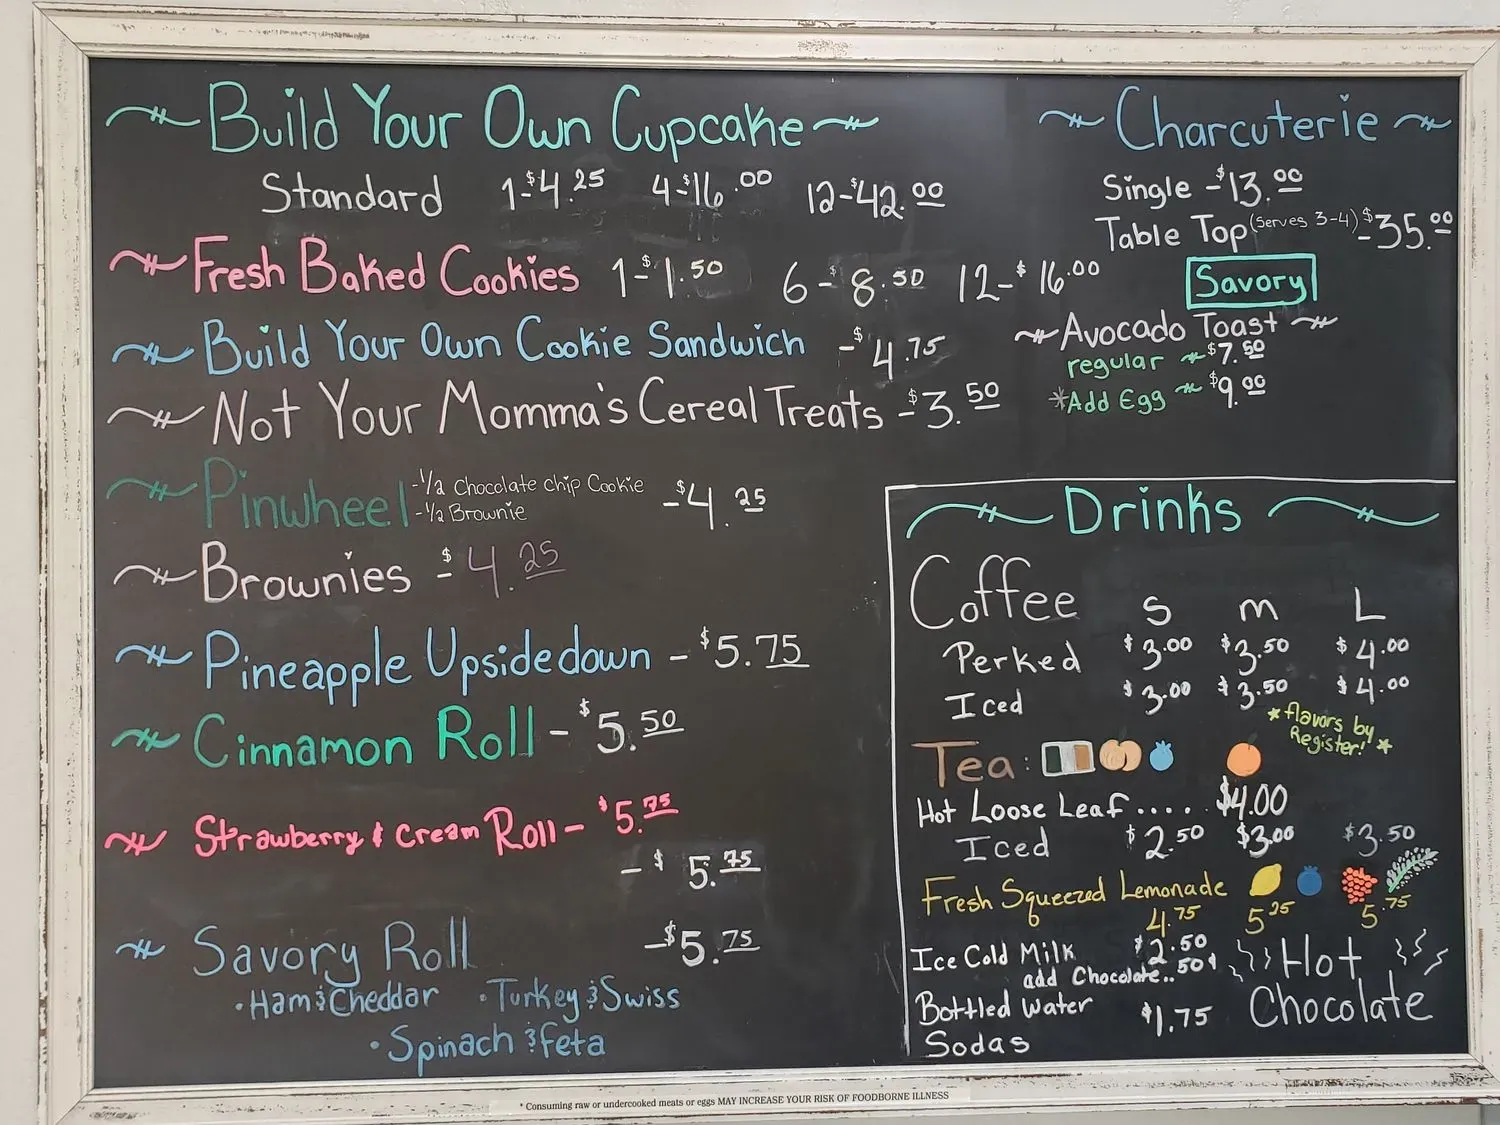 Build Your Own Cupcake
Standard 1-$4.25 4-$16.00 12-$42.00
Fresh Baked Cookies 1-$1.50 6-$8.50 12-$16.00
Build Your Own Cookie Sandwich -$4.75
Not Your Momma's Cereal Treats -$3.50
Pinwheel -$4.25
-1/2 Chocolate chip Cookie
-1/2 Brownie
Brownies -$4.25
Pineapple Upsidedown -$5.75
Cinnamon Roll -$5.50
Strawberry & Cream Roll - $5.75
-$5.75
Savory Roll -$5.75
•Ham & Cheddar •Turkey & Swiss
•Spinach & Feta
Charcuterie
Single -$13.00
Table Top (Serves 3-4) -$35.00
Savory
Avocado Toast
regular $7.50
*Add Egg $9.00
Drinks
Coffee S M L
Perked $3.00 $3.50 $4.00
Iced $3.00 $3.50 $4.00
*flavors by
Register!*
Tea:
Hot Loose Leaf.... $4.00
Iced $2.50 $3.00 $3.50
Fresh Squeezed Lemonade
4.75 5.25 5.75
Ice Cold Milk $2.50
add Chocolate...50¢
Bottled Water $1.75
Sodas
Hot
Chocolate
* Consuming raw or undercooked meats or eggs MAY INCREASE YOUR RISK OF FOODBORNE ILLNESS